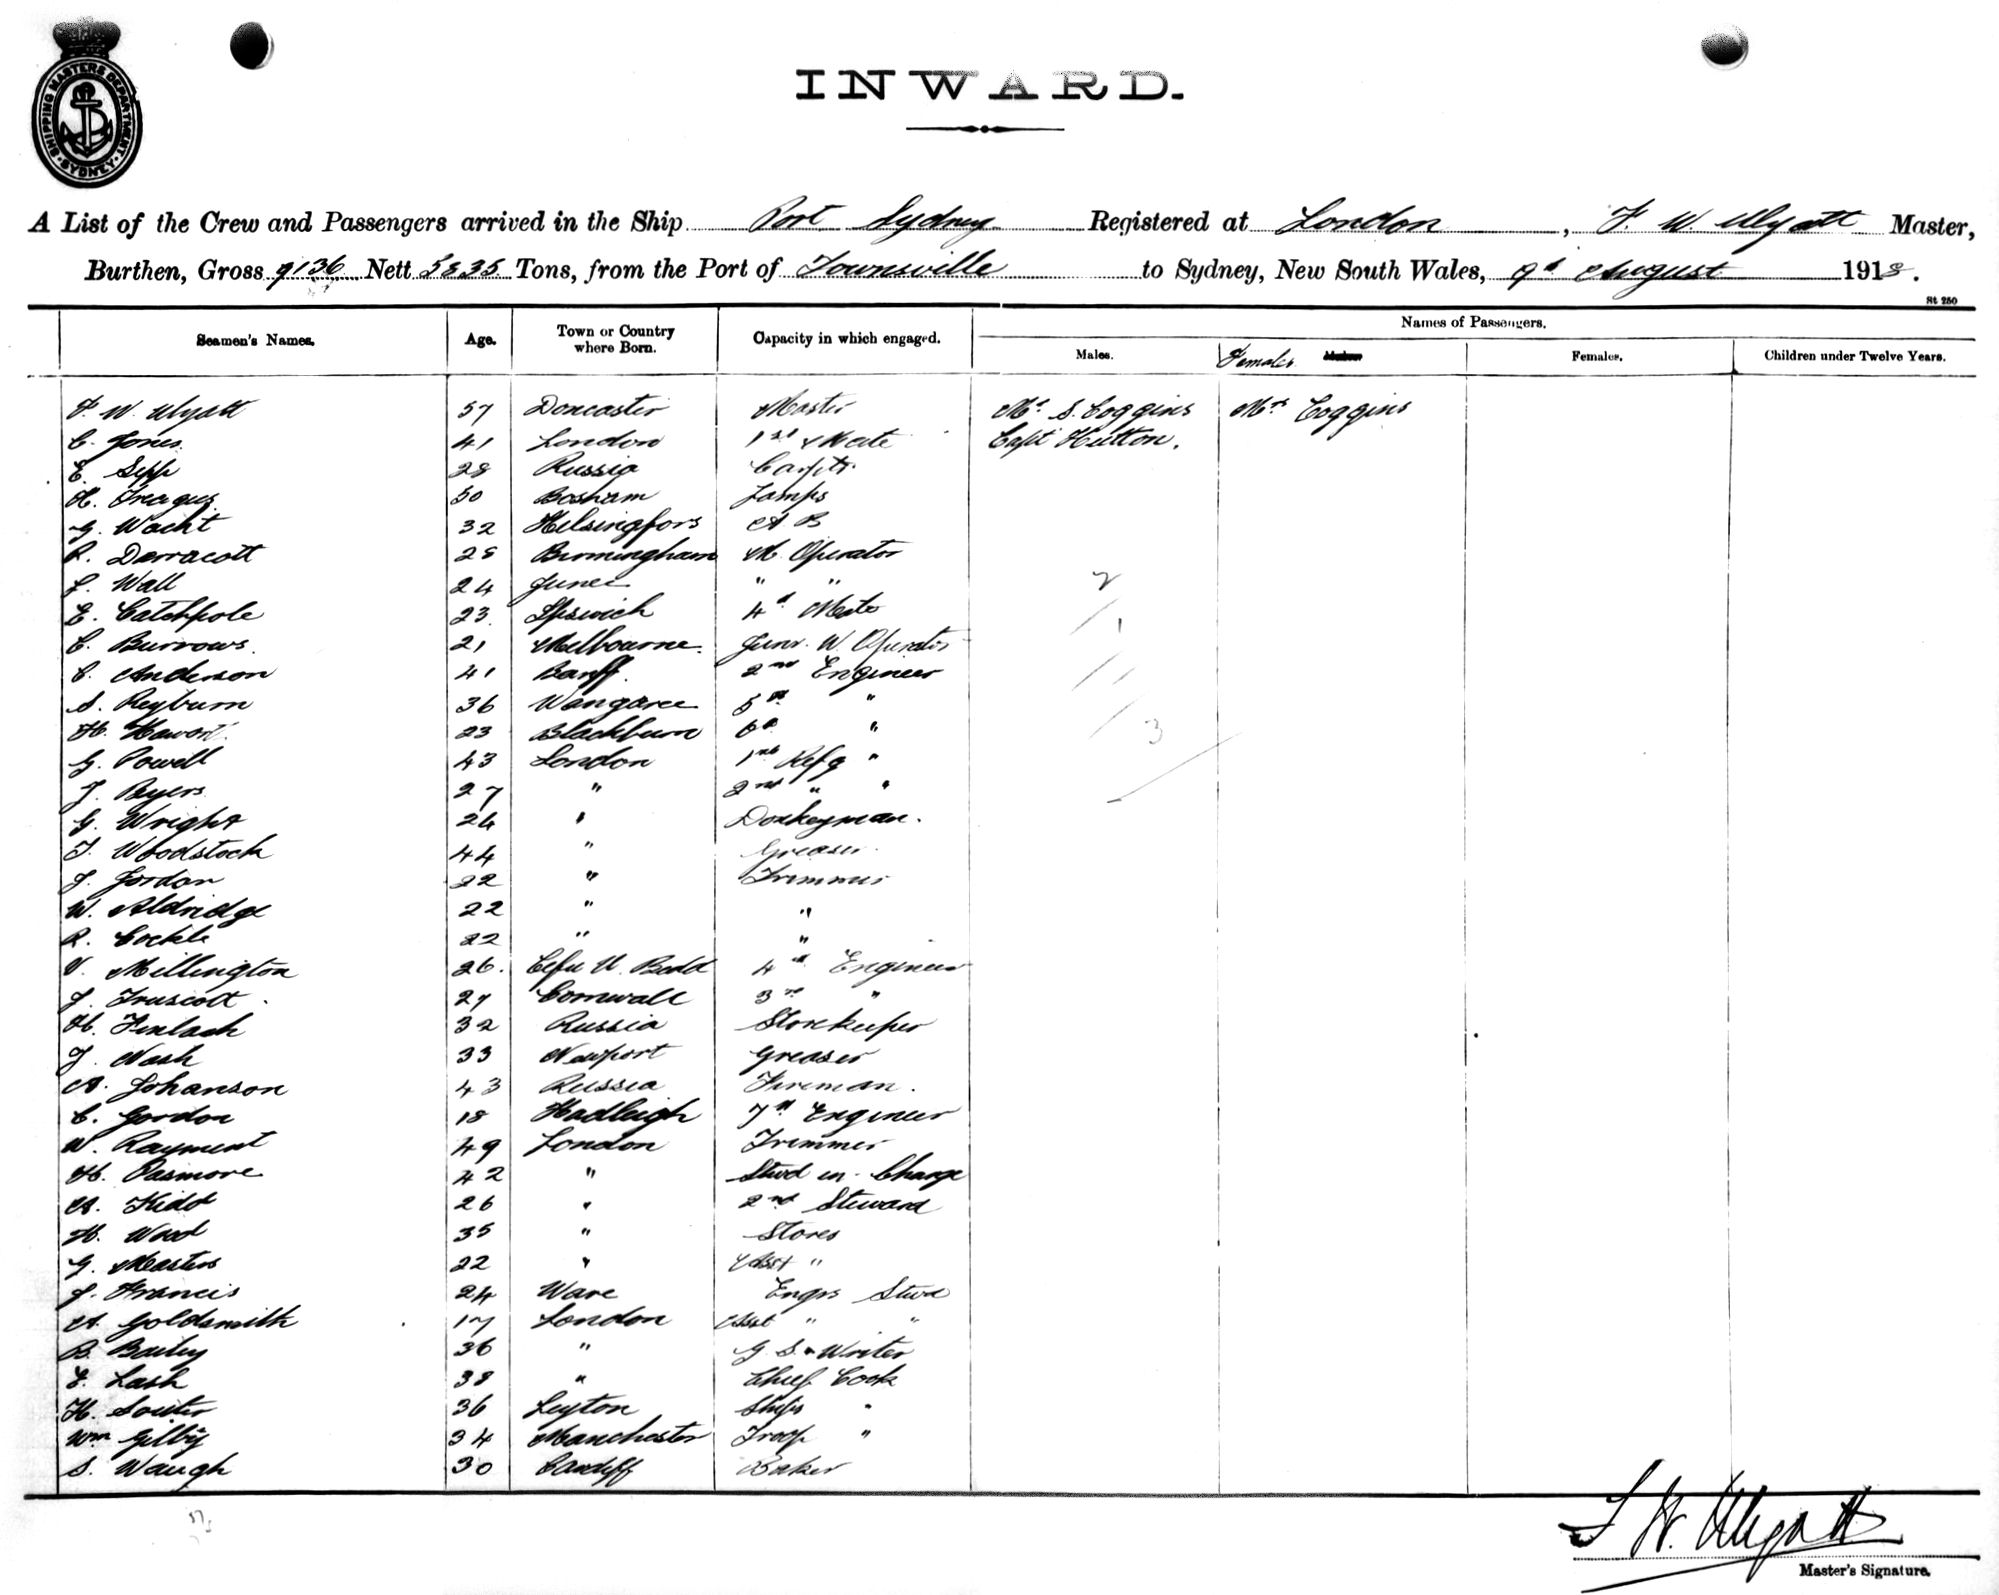 SHIPPING MASTERS DEPARTMENT · SYDNEY ·
INWARD.
A List of the Crew and Passengers arrived in the Ship Port Sydney Registered at London, F. W. Wyatt Master,
Burthen, Gross 9136 Nett 5835 Tons, from the Port of Townsville to Sydney, New South Wales, 9th August 1918.
St 250
Seamen's Names. Age. Town or Country where Born. Capacity in which engaged. Names of Passengers.
Males. Females Females. Children under Twelve Years.
F. W. Wyatt 57 Doncaster Master Mr. S. Coggins Mrs Coggins
C. Jones 41 London 1st Mate Capt Hutton.
E. Sepp 28 Russia Carptr
H. Treagus 50 Bosham Lamps
G. Wacht 32 Helsingfors A B
R. Darracott 28 Birmingham W. Operator
L. Wall 24 Junee " "
E. Catchpole 23 Ipswich 4th Mate
C. Burrows 21 Melbourne Junr. W. Operator
C. Anderson 41 Banff 2nd Engineer
S. Reyburn 36 Wangaree 5th "
H. Haworth 23 Blackburn 6th "
G. Powell 43 London 1st Refg "
J. Byers 27 " 2nd " "
G. Wright 24 " Donkeyman.
T. Woodstock 44 " Greaser
J. Jordan 22 " Trimmer
W. Aldridge 22 " "
R. Cockle 22 " "
V. Millington 26. Cefn Y. Bedd 4th Engineer
J. Truscott 27 Cornwall 3rd "
H. Finlash 32 Russia Storekeeper
J. Nash 33 Newport Greaser
A. Johanson 43 Russia Fireman.
C. Gordon 18 Hadleigh 7th Engineer
W. Rayment 49 London Trimmer
H. Pasmore 42 " Stwd in Charge
A. Kidd 26 " 2nd Steward
H. Wood 35 " Stores
G. Masters 22 " Asst "
J. Francis 24 Ware Engrs Stwd
A. Goldsmith 17 London Asst " "
B. Bailey 36 " G. S. Writer
E. Lash 38 " Chief Cook
H. Souter 36 Leyton Ships "
Wm Gilby 34 Manchester Troop "
S. Waugh 30 Cardiff Baker
2
1
3
F W. Wyatt
Master's Signature.